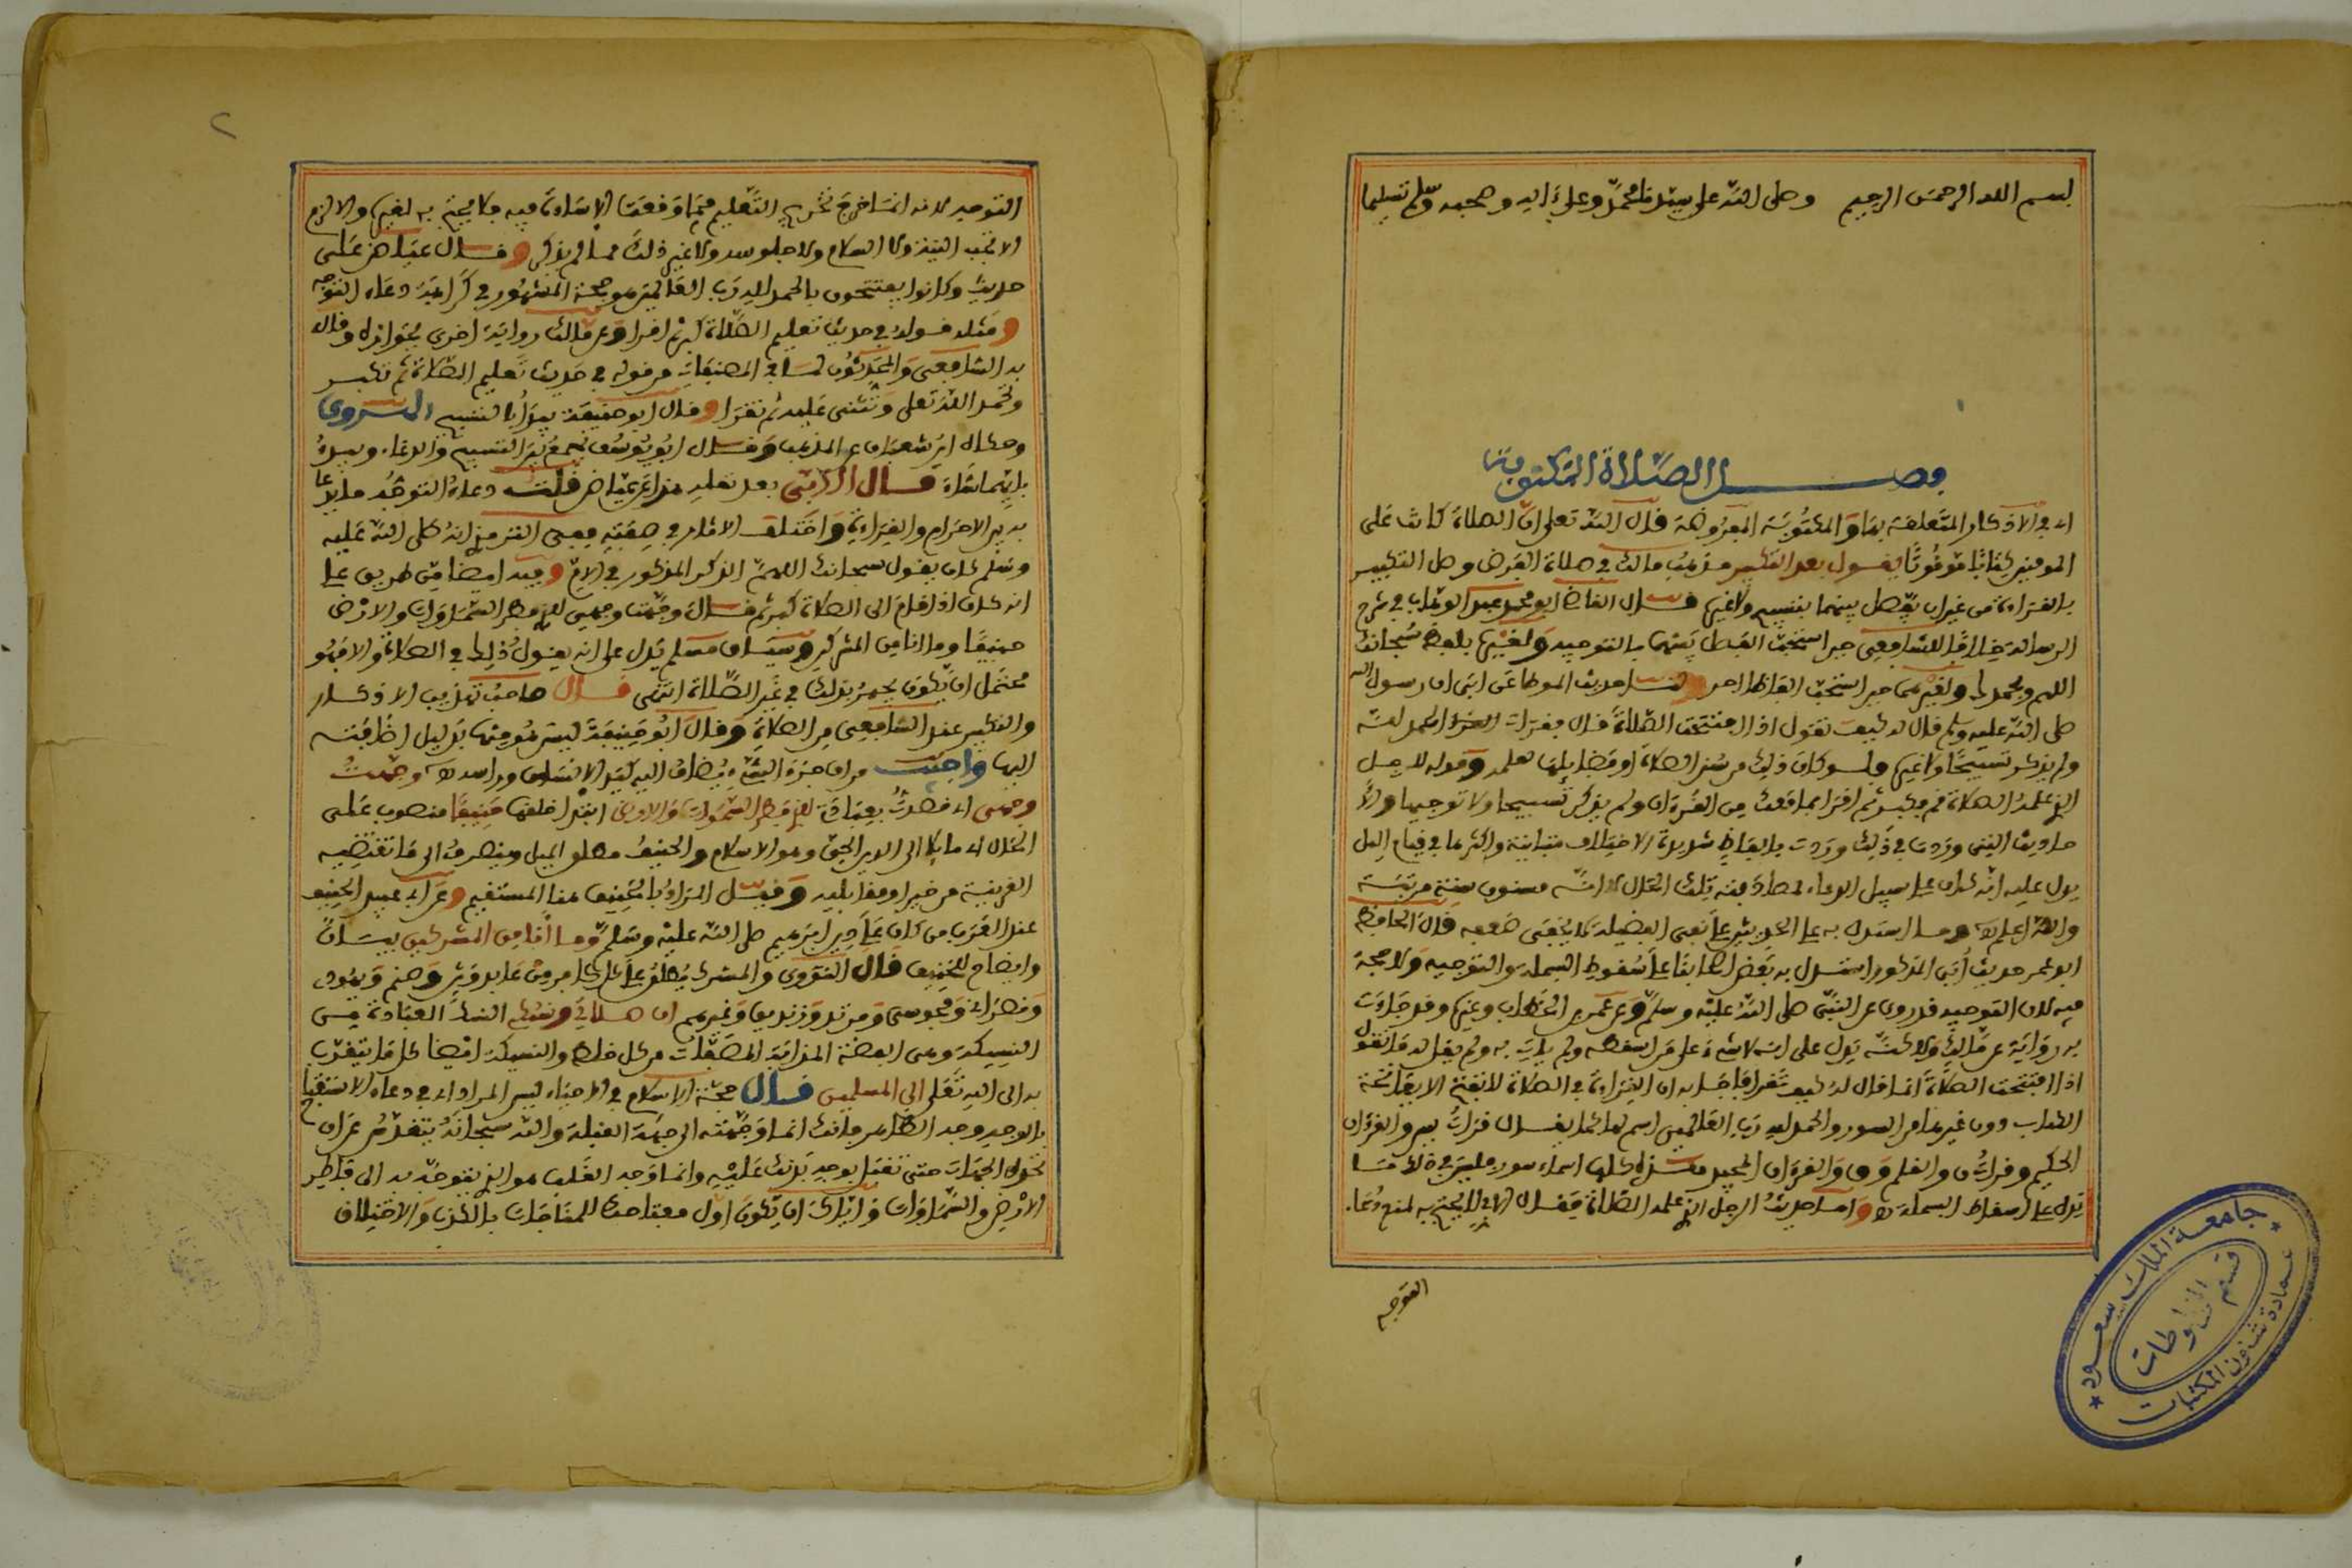 بسم الله الرحمن الرحيم وصلى الله على سيدنا محمد وعلى آله وصحبه وسلم تسليما
فصل الصلاة المكتوبة
اي في الاذكار المتعلقة بها والمكتوبة المفروضة قال الله تعالى ان الصلاة كانت على
المومنين كتابا موقوتا يقول بعد التكبير مذهب مالك في صلاة الفرض وصل التكبير
بالقراءة من غير ان يفصل بينهما بتسبيح ولا غيره قال القاضي ابو محمد عبد الوهاب في شرح
الرسالة خلافا للشافعي حين استحب الفصل بينهما بالتوجيه ولغيره بلفظ سبحانك
اللهم وبحمدك ولغيرهما حين استحب الفاظا اخر لنا حديث الموطا عن ابي ان رسول الله
صلى الله عليه وسلم قال له كيف تقول اذا افتتحت الصلاة قال فقرات الحمد لله
ولم يذكر تسبيحا ولا غيره ولو كان ذلك من سنن الصلاة او فضايلها لعلمه وقوله للرجل
الذي علمه الصلاة فكبر ثم اقرا بما معك من القرءان ولم يذكر تسبيحا ولا توجيها ولان
حاديث التي وردت في ذلك وردت بالفاظ شديدة الاختلاف متباينة واكثرها في قيام الليل
يدل عليه انه كان على سبيل الدعاء لمصادفته تلك الحال لا انه مسنون سنة مرتبة
والله اعلم وما استدل به على الحديثين على نفي الفضيلة لا يخفى ضعفه قال الحافظ
ابو عمر حديث ابي المذكور استدل به بعض اصحابنا على سقوط البسملة والتوجيه ولا حجة
فيه لان التوجيه قد روي عن النبي صلى الله عليه وسلم وعن عمر بن الخطاب وغيره وقد جاءت
به رواية عن مالك ولاكنه يدل على انه لا شيء على من اسقطه ولم يات به ولم يقل له ما تقول
اذا افتتحت الصلاة انما قال له كيف تقرا فاجابه ان القراءة في الصلاة لا تفتح الا بفاتحة
الكتاب دون غيرها من السور والحمد لله رب العالمين اسم لها كما يقال قرات يس والقرءان
الحكيم وقرات ن والقلم وق والقرءان المجيد وهذه كلها اسماء سور فليس في ذلك ما
يدل على اسقاط البسملة واما حديث الرجل الذي علمه الصلاة فقال الابي لا يحتج به لمنع دعاء
التوجيه
جامعة الملك سعود
قسم المخطوطات
عمادة شئون المكتبات
٢
التوجيه لانه انما خرج مخرج التعليم فيما وقعت الاساءة فيه فلا يحتج به لغيره والا لزم
الا تجب النية ولا السلام ولا جلوسه ولا غير ذلك مما لم يذكر وقال عياض على
حديث وكانوا يفتتحون بالحمد لله رب العالمين هو حجة المشهور في كراهة دعاء التوجه
ومثله قوله في حديث تعليم الصلاة كبر ثم اقرا وعن مالك رواية اخرى بجوازه وقال
به الشافعي والمحدثون لما في المصنفات من قوله في حديث تعليم الصلاة ثم تكبر
وتحمد الله تعالى وتثني عليه ثم تقرا وقال ابو حنيفة يبدا بالتسبيح المروي
وحكاه ابن شعبان عن المذهب وقال ابو يوسف يجمع بين التسبيح والدعاء ويبدا
بايهما شاء قال الابي بعد نقله هذا عن عياض قلت دعاء التوجه ما يدعا
به بين الاحرام والقراءة واختلفت الاثار في صفته ففي الترمذي انه صلى الله عليه
وسلم كان يقول سبحانك اللهم الذكر المذكور في الام وفيه ايضا من طريق علي
انه كان اذا قام الى الصلاة كبر ثم قال وجهت وجهي للذي فطر السماوات والارض
حنيفا وما انا من المشركين وسياق مسلم يدل على انه يقول ذلك في الصلاة والا فهو
محتمل ان يكون يجهر بذلك في غير الصلاة انتهى قال صاحب تهذيب الاذكار
والتكبير عند الشافعي من الصلاة وقال ابو حنيفة ليس هو منها بدليل اضافته
اليها واجيب من ان جزء الشيء يضاف اليه كيد الانسان وراسه وجهت
وجهي اي قصدت بعبادتي للذي فطر السموات والارض ابتدا خلقها حنيفا منصوب على
الحال اي مايلا الى الدين الحق وهو الاسلام والحنيف مطلق الميل وينصرف الى ما تقتضيه
القرينة من خير او مقابليه وقيل المراد بالحنيف هنا المستقيم وعن ابي عبيد الحنيف
عند العرب من كان على دين ابرهيم صلى الله عليه وسلم وما انا من المشركين بيان
وايضاح للحنيف قال النووي والمشرك يطلق على كل كافر من عابد وثن وصنم ويهودي
ونصراني ومجوسي ومرتد وزنديق وغيرهم ان صلاتي ونسكي النسك العبادة من
النسيكة وهي الفضة المذابة المصفاة من كل خلط والنسيكة ايضا كل ما يتقرب
به الى الله تعالى الى المسلمين قال حجة الاسلام في الاحياء ليس المراد اي في دعاء الاستفتاح
بالوجه وجه الظاهر فانك انما وجهته الى جهة القبلة والله سبحانه يتقدس عن ان
تحده الجهات حتى تقبل بوجه بدنك عليه وانما وجه القلب هو الذي تتوجه به الى فاطر
الارض والسماوات فاياك ان يكون اول مفاتحتك للمناجات بالكذب والاختلاق